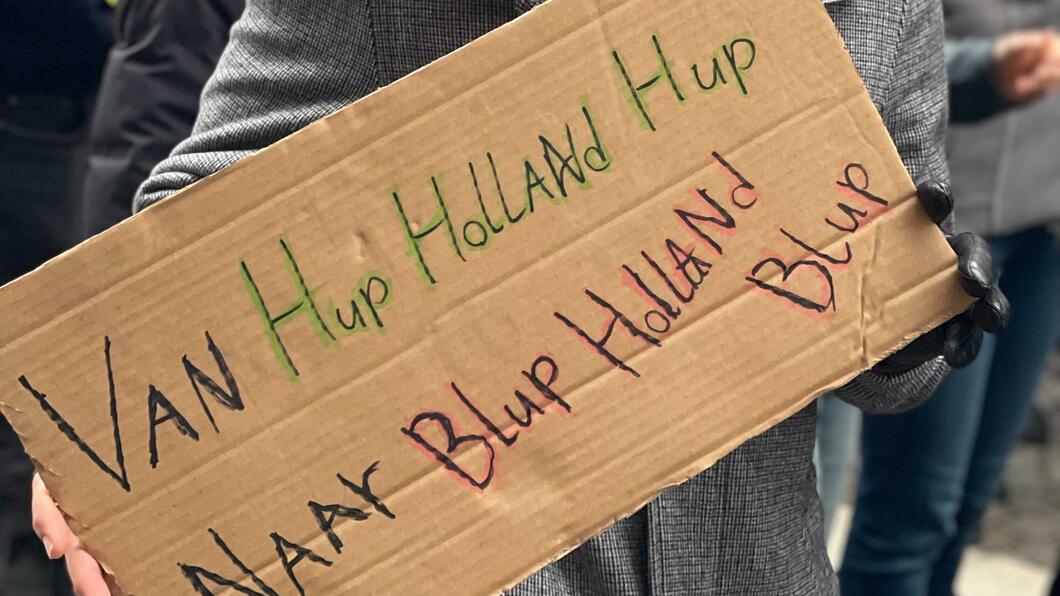 VAN Hup HollANd Hup
NAAr BLup HollANd BLup